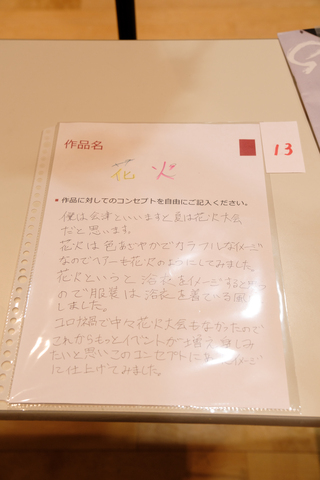 作品名
13
花火
★作品に対してのコンセプトを自由にご記入ください。
僕は会津といいますと夏は花火大会
だと思います。
花火は色あざやかでカラフルなイメージ
なのでヘアーも花火のようにしてみました。
花火というと浴衣をイメージすると思う
ので服装は浴衣を着ている風に
しました。
コロナ禍で中々花火大会もなかったので
これからもっとイベントが増え楽しみ
たいと思いこのコンセプトに
に仕上げてみました。